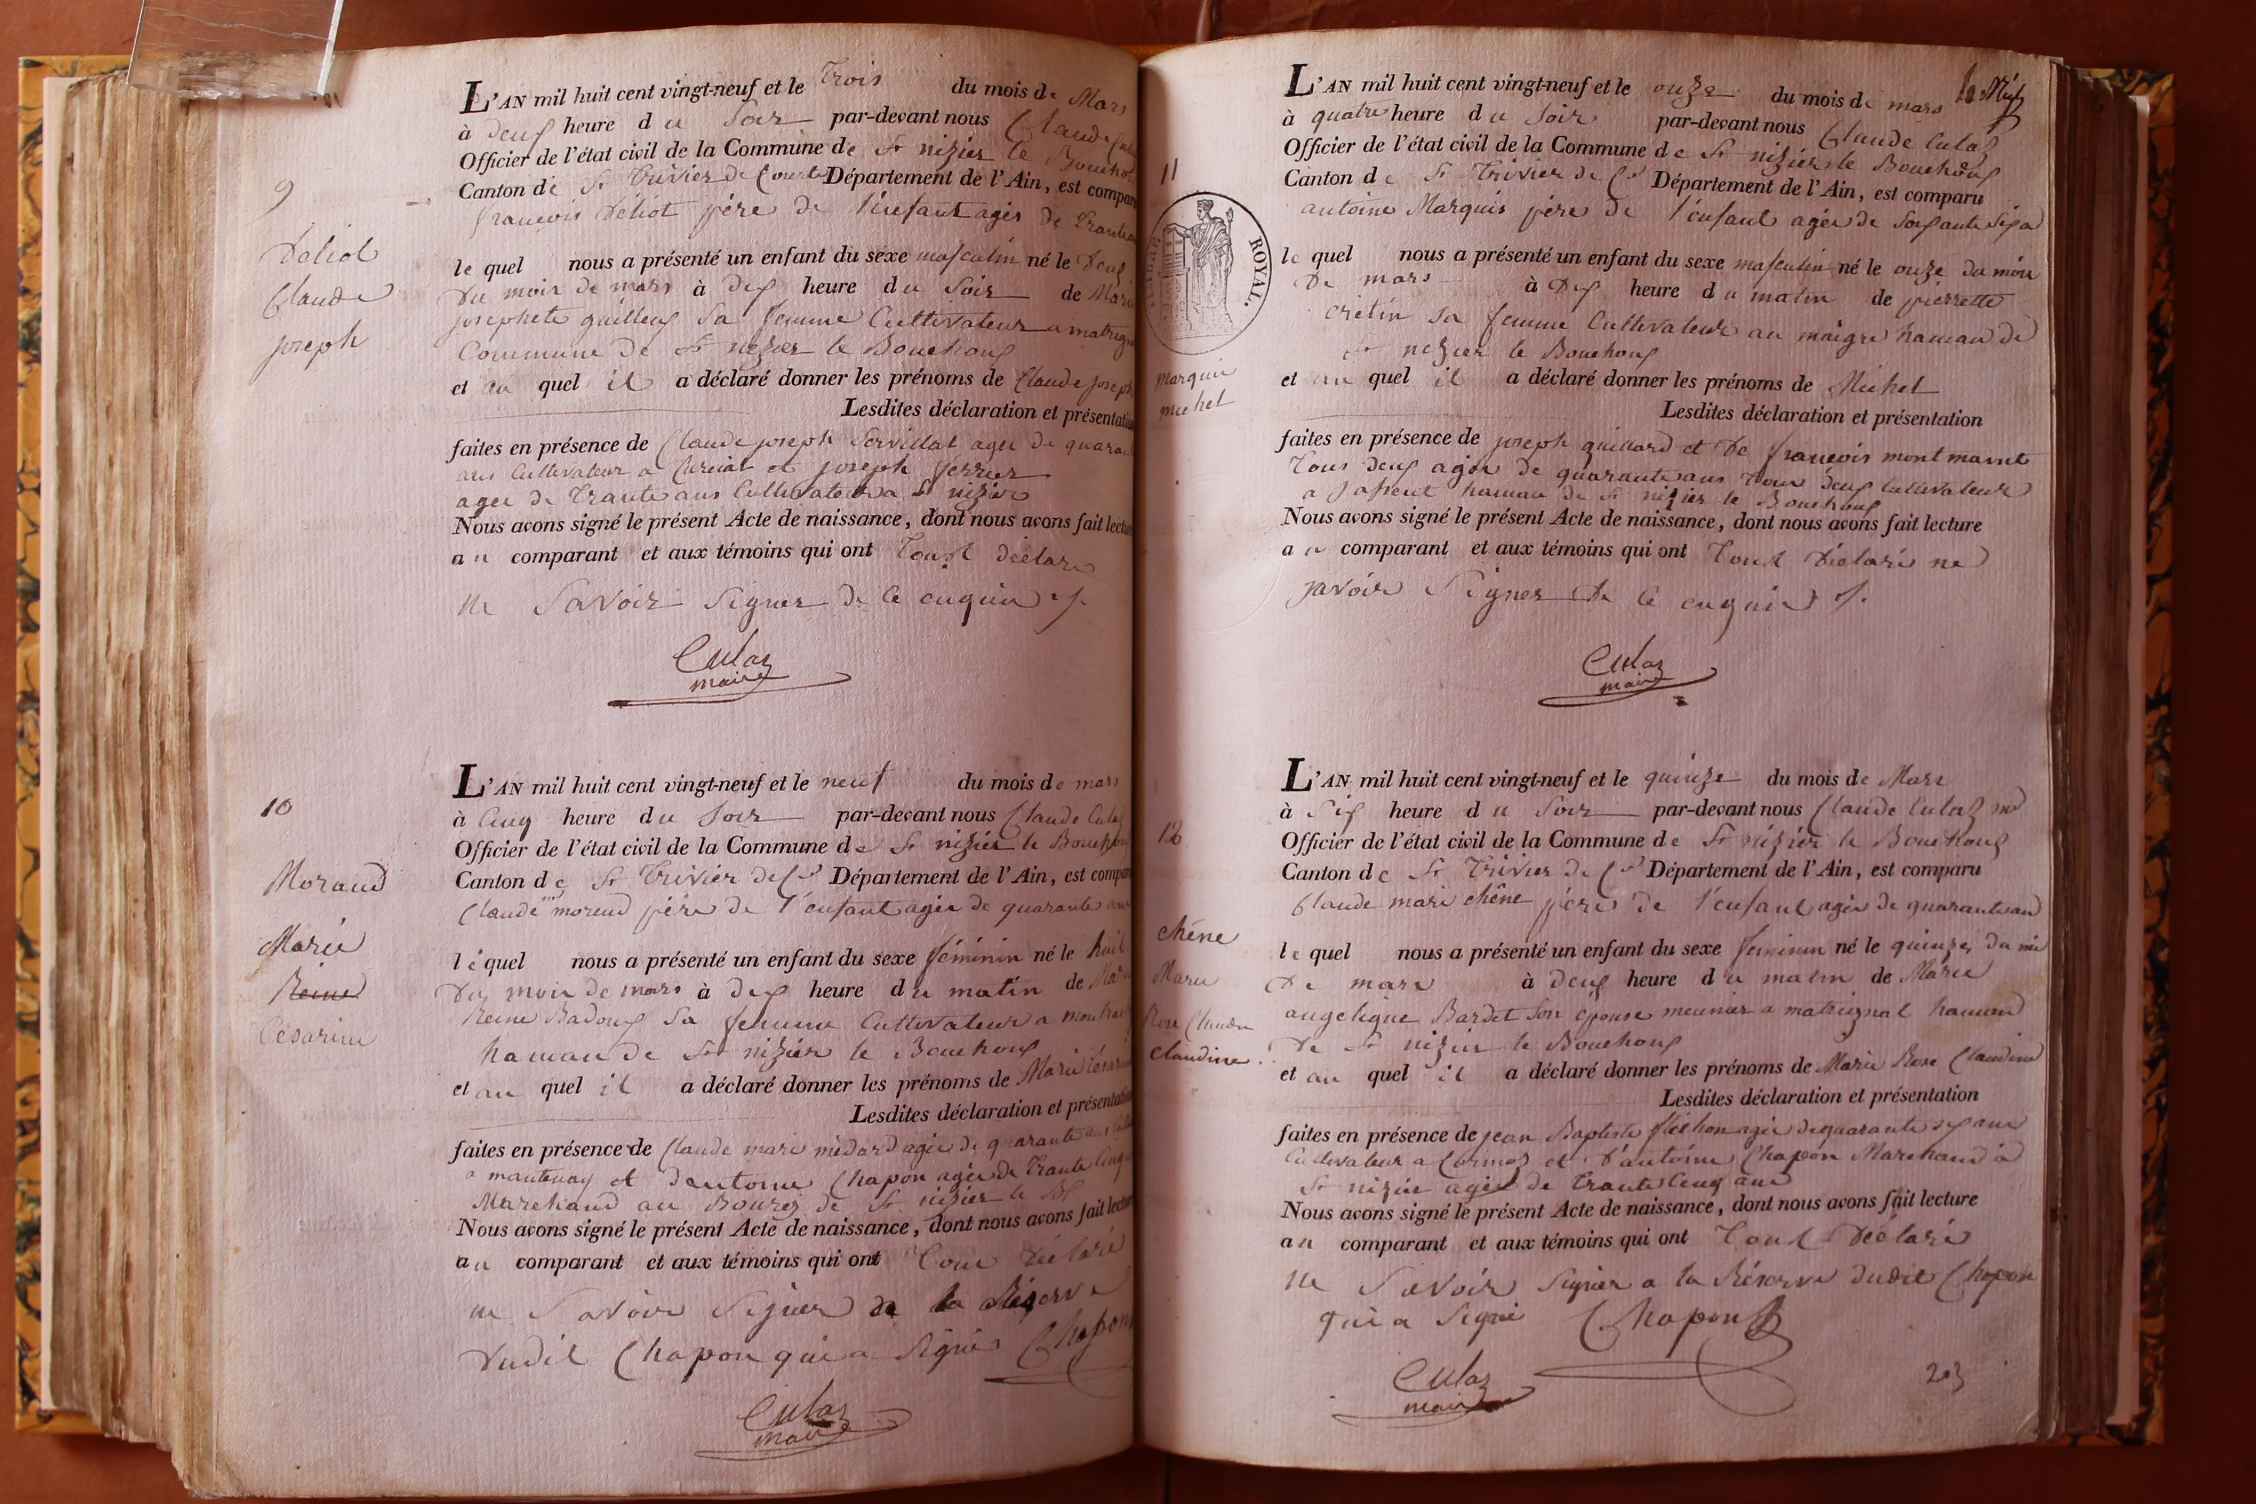 9
Deliot
Claude
joseph
L'AN mil huit cent vingt-neuf et le Trois du mois de Mars
à deux heure du Soir par-devant nous Claude
Officier de l'état civil de la Commune de St nizier le Bouchoux
Canton de St Trivier de Courtes Département de l'Ain, est comparu
françois Deliot père de l'enfant agés de
le quel nous a présenté un enfant du sexe masculin né le Deux
Du mois de mars à dix heure du Soir de Marie
josephete guilleux Sa femme Cultivateur a
Commune de St nizier le Bouchoux
et au quel il a déclaré donner les prénoms de Claude joseph
Lesdites déclaration et présentation
faites en présence de Claude joseph Servillat ager de
ans Cultivateur a Curciat et joseph ferrier
ager de Trante ans Cultivateur a St nizier
Nous avons signé le présent Acte de naissance, dont nous avons fait lecture
au comparant et aux témoins qui ont Tous déclare
ne Savoir Signer de ce enquis
Culaz
maire
10
Moraud
Marie
Reine
Césarine
L'AN mil huit cent vingt-neuf et le neuf du mois de mars
à Cinq heure du Soir par-devant nous Claude Culaz
Officier de l'état civil de la Commune de St nizier le Bouchoux
Canton de St Trivier de Ctes Département de l'Ain, est comparu
Claude mie moreud père de l'enfant agée de quarante ans
le quel nous a présenté un enfant du sexe féminin né le huit
Du mois de mars à dix heure du matin de
Reine Badoux Sa femme Cultivateur a
hamau de St nizier le Bouchoux
et au quel il a déclaré donner les prénoms de Marie Césarine
Lesdites déclaration et présentation
faites en présence de Claude marie médard agée de quarante ans
a mantenay et dantoine Chapon agée de Trante Cinq
Marchand au Bourg de St nizier le Bx
Nous avons signé le présent Acte de naissance, dont nous avons fait lecture
au comparant et aux témoins qui ont Tous déclaré
ne Savoir Signer de la Réserve
Dudit Chapon qui a Signé Chapon
Culaz
maire
11
ROYAL.
marquis
michel
L'AN mil huit cent vingt-neuf et le onze du mois de mars
à quatre heure du Soir par-devant nous Claude Culaz
Officier de l'état civil de la Commune de St nizier le Bouchoux
Canton de St Trivier de Ctes Département de l'Ain, est comparu
antoine Marquis père de l'enfant agée de
le quel nous a présenté un enfant du sexe masculin né le onze du mois
De mars à Dix heure du matin de pierrette
cretin sa femme Cultivateur au maigre hamau de
St nizier le Bouchoux
et au quel il a déclaré donner les prénoms de Michel
Lesdites déclaration et présentation
faites en présence de joseph guillard et De françois
Tous deux agée de quarante ans Tous deux Cultivateur
a hamau de St nizier le Bouchoux
Nous avons signé le présent Acte de naissance, dont nous avons fait lecture
au comparant et aux témoins qui ont Tout Déclaré ne
savoir Signer De ce enquis
Culaz
maire
12
chêne
Marie
Rose Claudin
claudine
L'AN mil huit cent vingt-neuf et le quinze du mois de Mars
à Six heure du Soir par-devant nous Claude Culaz
Officier de l'état civil de la Commune de St nizier le Bouchoux
Canton de St Trivier de Ctes Département de l'Ain, est comparu
Claude mari chêne père de l'enfant agée de quarante ans
le quel nous a présenté un enfant du sexe feminin né le quinze du moi
De mars à deux heure du matin de Marie
angelique Bardet Son épouse meunier a matrignat hamau
De St nizier le Bouchoux
et au quel il a déclaré donner les prénoms de Marie Rose Claudine
Lesdites déclaration et présentation
faites en présence de jean Baptiste agée de quarante six ans
Cultivateur a Cormoz et D'antoine Chapon Marchand à
St nizier agée de Trante Cinq ans
Nous avons signé le présent Acte de naissance, dont nous avons fait lecture
au comparant et aux témoins qui ont Tout Déclaré
ne Savoir Signer a la Réserve dudit Chapon
qui a Signé Chapon
Culaz
maire
203